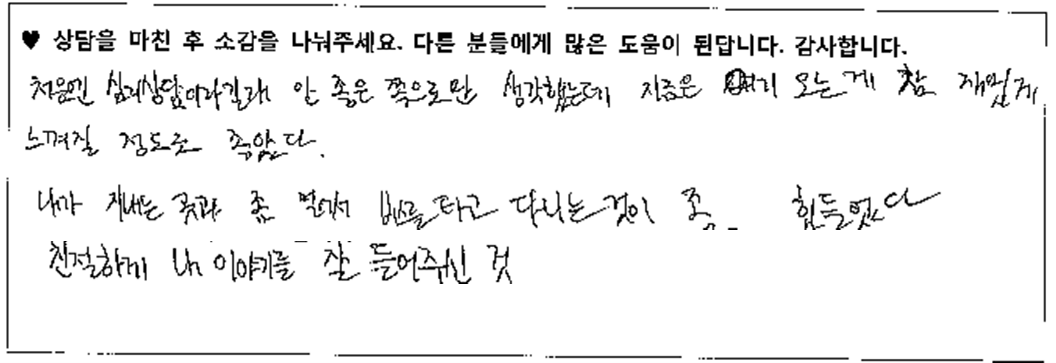 ♥ 상담을 마친 후 소감을 나눠주세요. 다른 분들에게 많은 도움이 된답니다. 감사합니다.
처음엔 심리상담이라길래 안 좋은 쪽으로만 생각했는데 지금은 여기 오는게 참 재밌게
느껴질 정도로 좋았다.
내가 지내는 곳과 좀 멀어서 버스를 타고 다니는 것이 좀 힘들었다
친절하게 내 이야기를 잘 들어주신 것